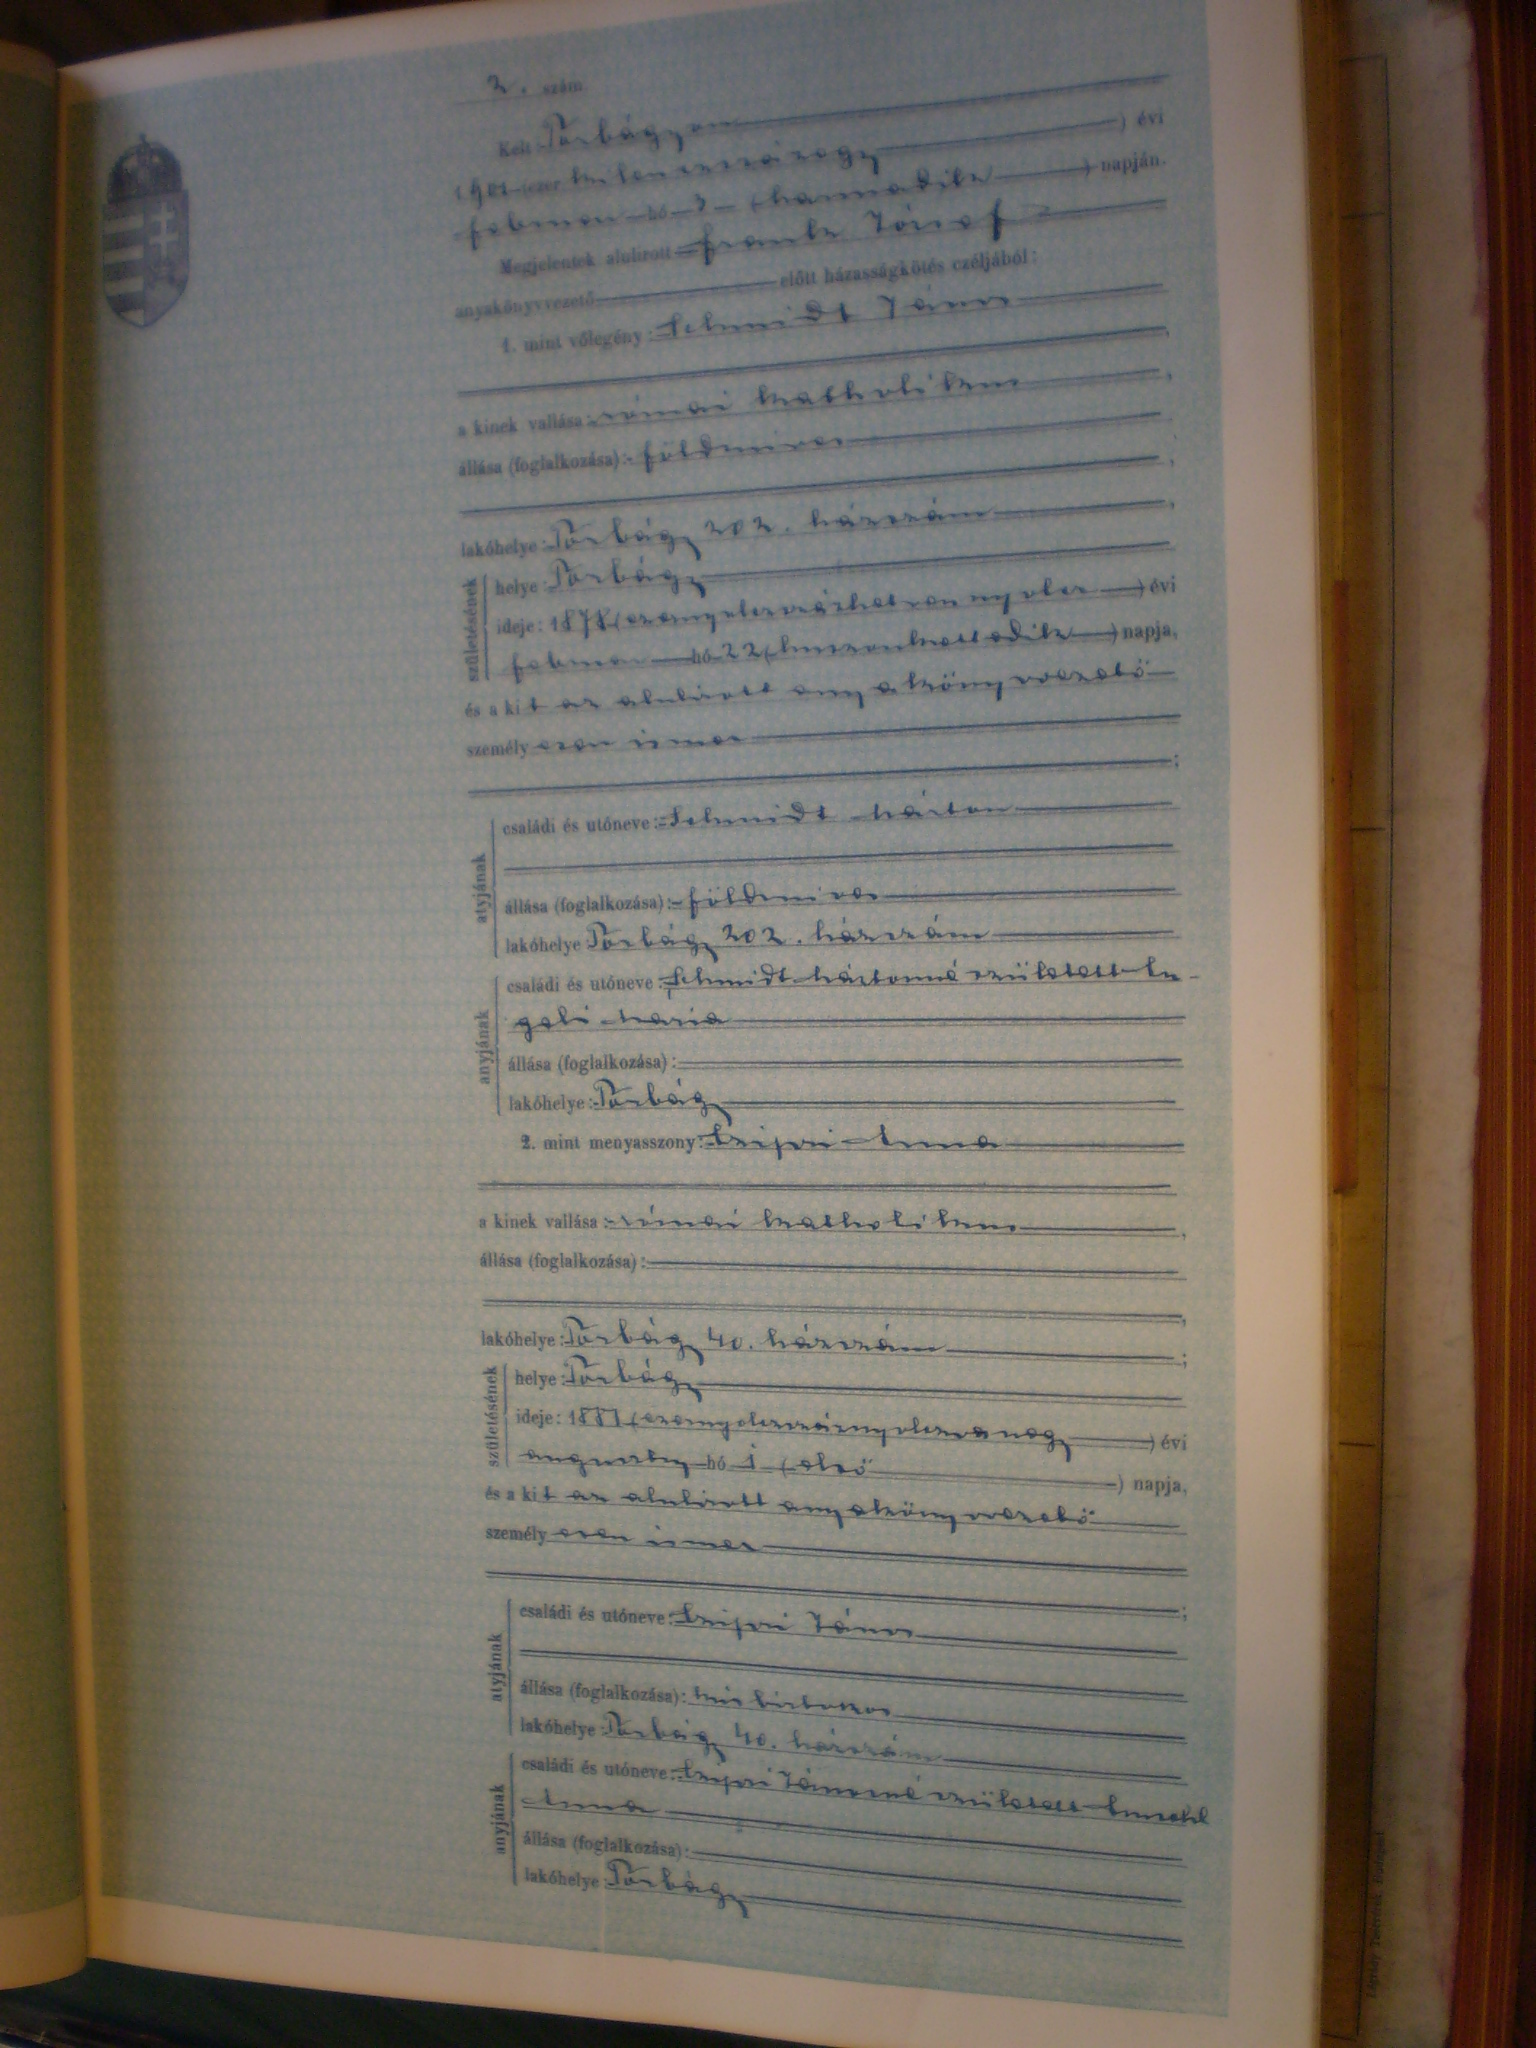 2. szám
Kelt Torbágyon
) évi
1901 (ezer kilenczszázegy
február hó 3 (harmadik ) napján.
Megjelentek alulirott Frank József
anyakönyvvezető előtt házasságkötés czéljából:
1. mint vőlegény: Schmidt János
a kinek vallása: római katholikus
állása (foglalkozása): földmives
lakóhelye: Torbágy 202. házszám
születésének
helye: Torbágy
ideje: 1878 (ezernyolczszázhetvennyolcz ) évi
február hó 22 (huszonkettedik ) napja,
és a kit az alulirott anyakönyvvezető
személyesen ismer
;
atyjának
családi és utóneve: Schmidt Márton
állása (foglalkozása): földmives
lakóhelye Torbágy 202. házszám
anyjának
családi és utóneve: Schmidt Mártonné született
Mária
állása (foglalkozása):
lakóhelye: Torbágy
2. mint menyasszony: Anna
a kinek vallása: római katholikus
állása (foglalkozása):
lakóhelye: Torbágy 40. házszám ;
születésének
helye: Torbágy
ideje: 1881 (ezernyolczszáznyolczvanegy ) évi
augusztus hó 1 (első ) napja,
és a kit az alulirott anyakönyvvezető
személyesen ismer
;
atyjának
családi és utóneve: János
állása (foglalkozása): kisbirtokos
lakóhelye: Torbágy 40. házszám
anyjának
családi és utóneve: Jánosné született
Anna
állása (foglalkozása):
lakóhelye: Torbágy